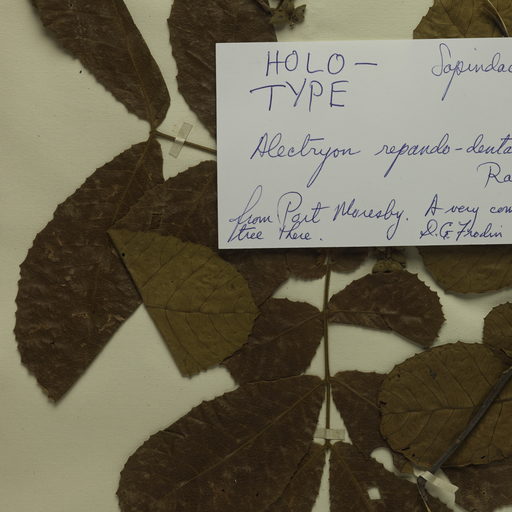 HOLO- Sapindac
TYPE
Alectryon repando-denta
Ra
from Port Moresby. A very com
tree there. D.G. Frodin